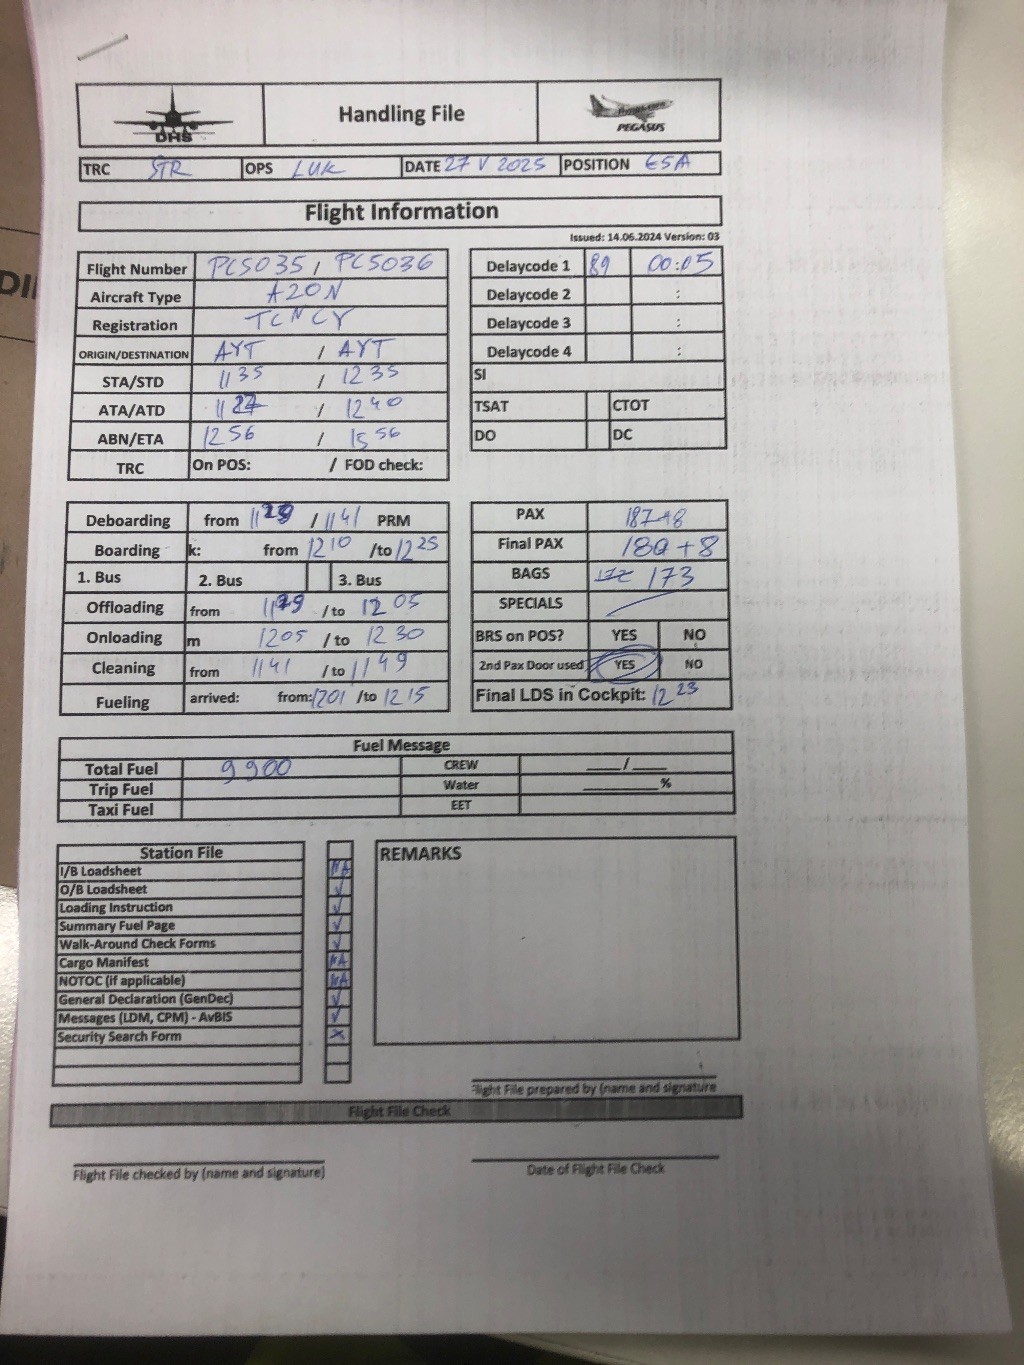 DHS
Handling File
flypgs.com
PEGASUS
TRC STR OPS LUK DATE 27 V 2025 POSITION E5A
Flight Information
Issued: 14.06.2024 Version: 03
Flight Number PC5035 / PC5036
Aircraft Type A20N
Registration TCNCY
ORIGIN/DESTINATION AYT / AYT
STA/STD 1135 / 1235
ATA/ATD 11 / 1240
ABN/ETA 1256 / 1556
TRC On POS: / FOD check:
Delaycode 1 89 00:05
Delaycode 2 :
Delaycode 3 :
Delaycode 4 :
SI
TSAT CTOT
DO DC
Deboarding from 1129 / 1141 PRM
Boarding k: from 1210 /to 1225
1. Bus 2. Bus 3. Bus
Offloading from 1129 /to 1205
Onloading m 1205 /to 1230
Cleaning from 1141 /to 1149
Fueling arrived: from: 1201 /to 1215
PAX 187+8
Final PAX +8
BAGS 172 173
SPECIALS
BRS on POS? YES NO
2nd Pax Door used YES NO
Final LDS in Cockpit: 1223
Fuel Message
Total Fuel 9900 CREW ____/____
Trip Fuel Water ________%
Taxi Fuel EET
Station File
I/B Loadsheet NA
O/B Loadsheet ✓
Loading Instruction ✓
Summary Fuel Page ✓
Walk-Around Check Forms ✓
Cargo Manifest NA
NOTOC (if applicable) NA
General Declaration (GenDec) ✓
Messages (LDM, CPM) - AvBIS ✓
Security Search Form X
REMARKS
light File prepared by (name and signature
Flight File Check
Flight File checked by (name and signature)
Date of Flight File Check